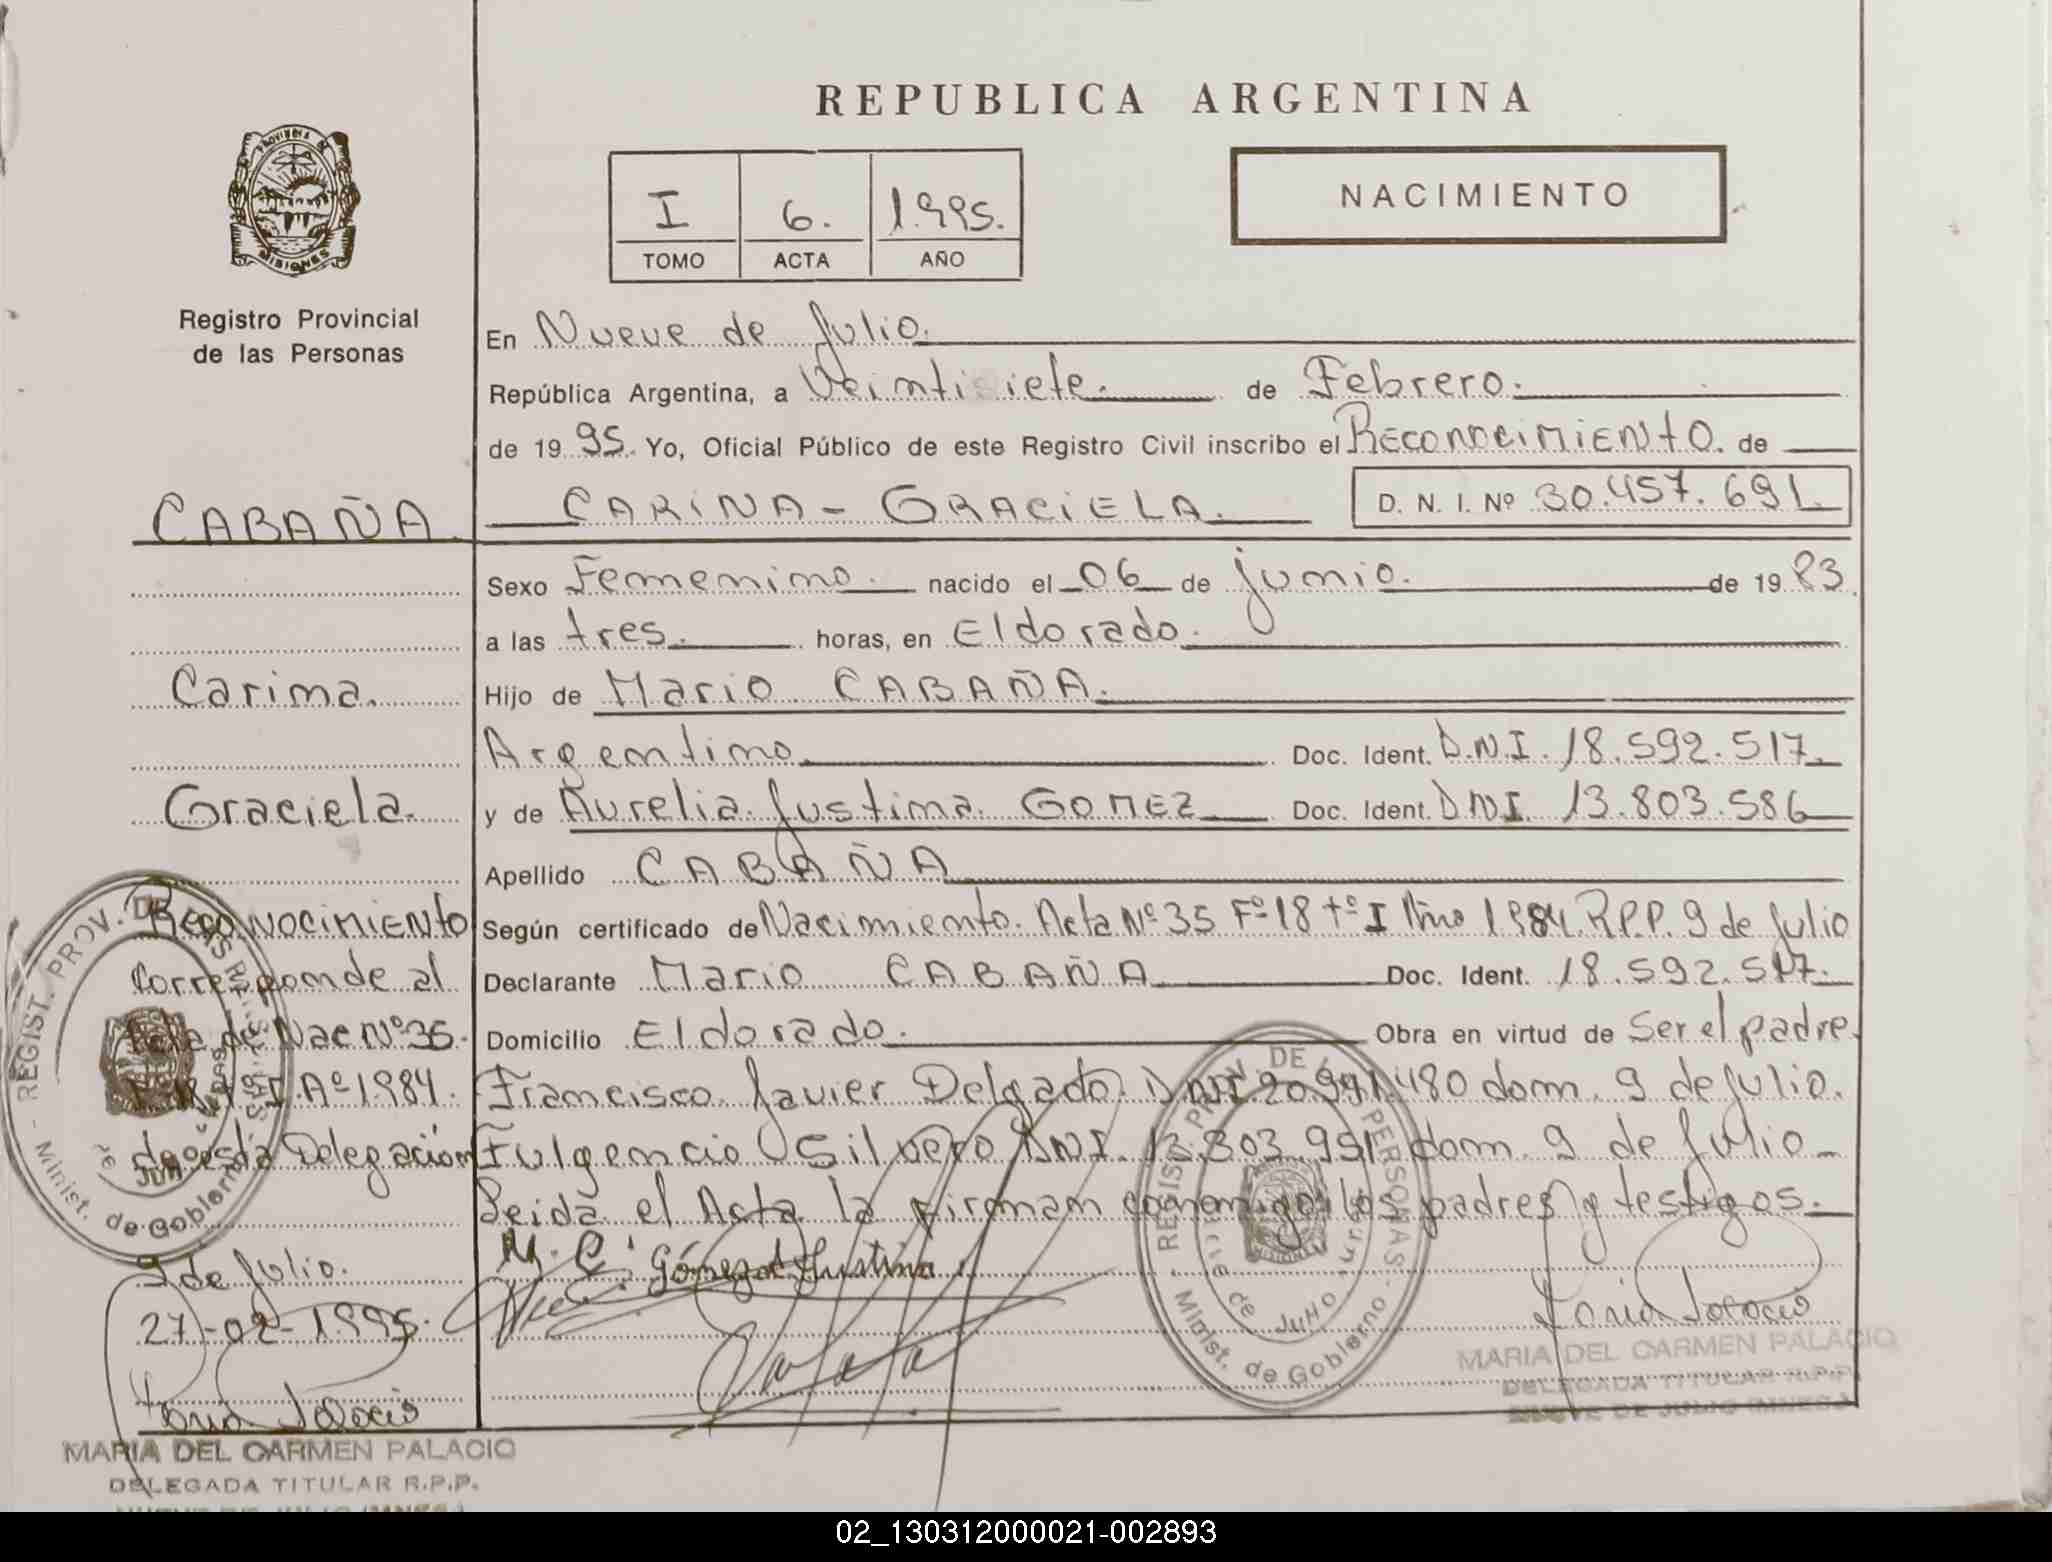 REPUBLICA ARGENTINA
PROVINCIA DE
MISIONES
Registro Provincial
de las Personas
I 6. 1.995.
TOMO ACTA AÑO
NACIMIENTO
En Nueve de Julio.
República Argentina, a Veintisiete. de Febrero.
de 19 95. Yo, Oficial Público de este Registro Civil inscribo el RECONOCIMIENTO. de
CARINA - GRACIELA. D. N. I. Nº 30.457.691.
Sexo Femenino. nacido el 06 de junio. de 19 83.
a las tres. horas, en Eldorado.
Hijo de Mario CABAÑA.
Argentino. Doc. Ident. D.N.I. 18.592.517.
y de Aurelia Justina GOMEZ Doc. Ident. DNI. 13.803.586
Apellido CABAÑA
Según certificado de Nacimiento. Acta Nº 35 Fº 18 tº I Año 1984. R.P.P. 9 de Julio
Declarante Mario CABAÑA Doc. Ident. 18.592.517.
Domicilio Eldorado. Obra en virtud de Ser el padre.
Francisco Javier Delgado. DNI 20.991.480 dom. 9 de Julio.
Fulgencio Silvero DNI. 13.803.991 dom. 9 de Julio-
Leida el Acta la firman conmigo los padres y testigos.
M. C. Gómez Justina
MARIA DEL CARMEN PALACIO
DELEGADA TITULAR R.P.P.
NUEVE DE JULIO (MNES)
CABAÑA.
Carina.
Graciela.
Reconocimiento
Corresponde al
Acta de Nac Nº 35.
I. Aº 1.984.
de esta Delegación
9 de Julio.
27-02-1.995.
MARIA DEL CARMEN PALACIO
DELEGADA TITULAR R.P.P.
NUEVE DE JULIO (MNES)
REGIST. PROV. DE LAS PERSONAS
Minist. de Gobierno
REGIST. PROV. DE LAS PERSONAS
Nueve de Julio
Minist. de Gobierno
02_130312000021-002893